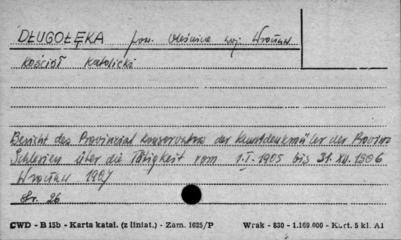 DŁUGOŁĘKA pow. Oleśnica woj. Wrocław
Kościół katolicki
Bericht des Provinzial Konservators der Kunstdenkmäler der Provinz
Schlesien über die Tätigkeit vom 1.I.1905 bis 31.XII.1906
Wrocław 1907
Str. 26
CWD - B 15b - Karta katal. (z liniat.) - Zam. 1625/P Wrak - 830 - 1.169.000 - Kart. 5 kl. A1